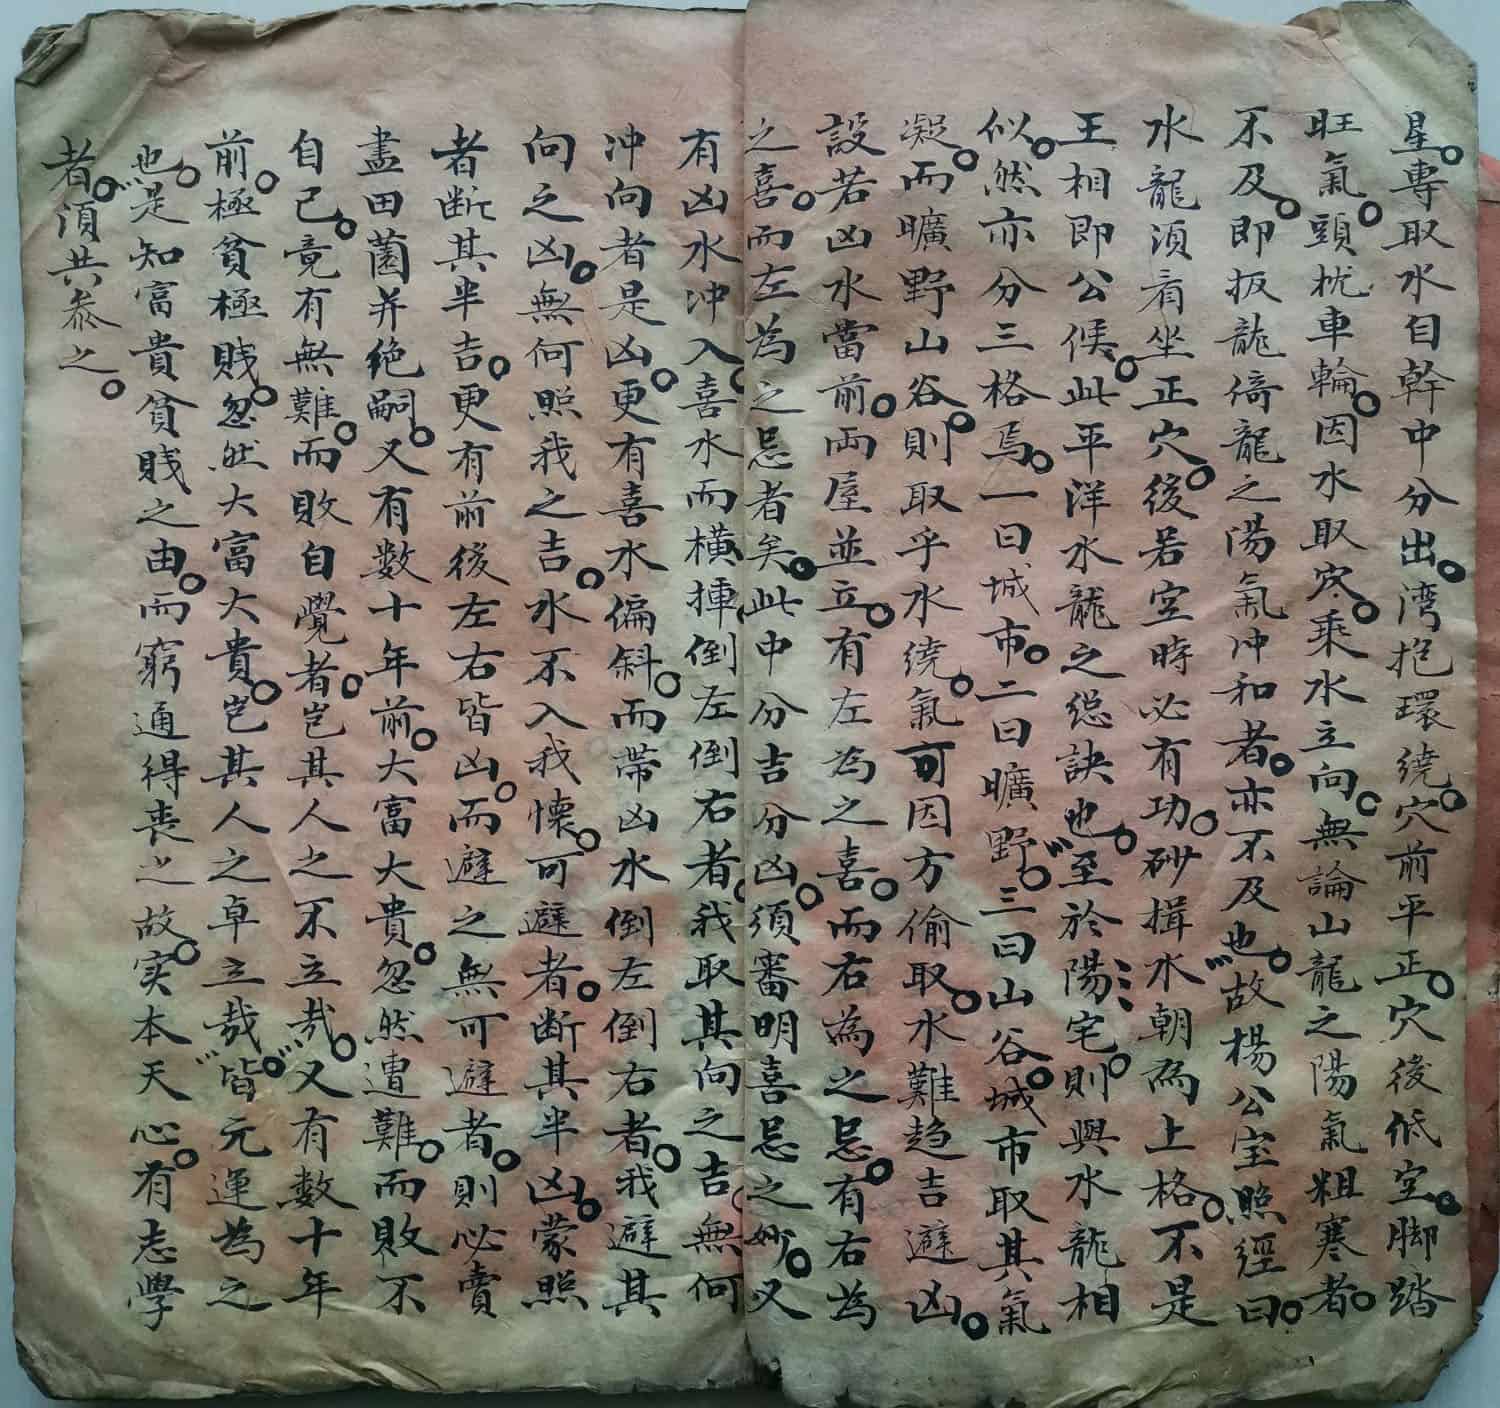 星。專取水自幹中分出。湾抱環繞。穴前平正。穴後低空。脚踏
旺氣。頭枕車輪。因水取穴。乘水立向。無論山龍之陽氣粗寒者。
不及。即扳龍倚龍之陽氣冲和者。亦不及也。故楊公宝照經曰。
水龍湏看坐正穴。後若空時必有功。砂揖水朝為上格。不是
王相即公侯。此平洋水龍之總訣也。至於陽宅。則與水龍相
似。然亦分三格焉。一曰城市。二曰曠野。三曰山谷。城市取其氣
凝。而曠野山谷。則取乎水繞。氣可因方偷取。水難趋吉避凶。
設若凶水當前。両屋並立。有左為之喜。而右為之忌。有右為
之喜。而左為之忌者矣。此中分吉分凶。須審明喜忌之妙。又
有凶水冲入。喜水而横揷倒左倒右者。我取其向之吉。無何
冲向者是凶。更有喜水偏斜。而帶凶水倒左倒右者。我避其
向之凶。無何照我之吉。水不入我懷。可避者。断其半凶。蒙照
者断其半吉。更有前後左右皆凶。而避之無可避者。則必賣
盡田園并绝嗣。又有数十年前。大富大貴。忽然遭難。而敗不
自已。竟有無難。而敗自覺者。岂其人之不立哉。又有數十年
前。極貧極賎。忽然大富大貴。岂其人之卓立哉。皆元運為之
也。是知富貴貧賎之由。而窮通得丧之故。实本天心。有志學
者。湏共叅之。